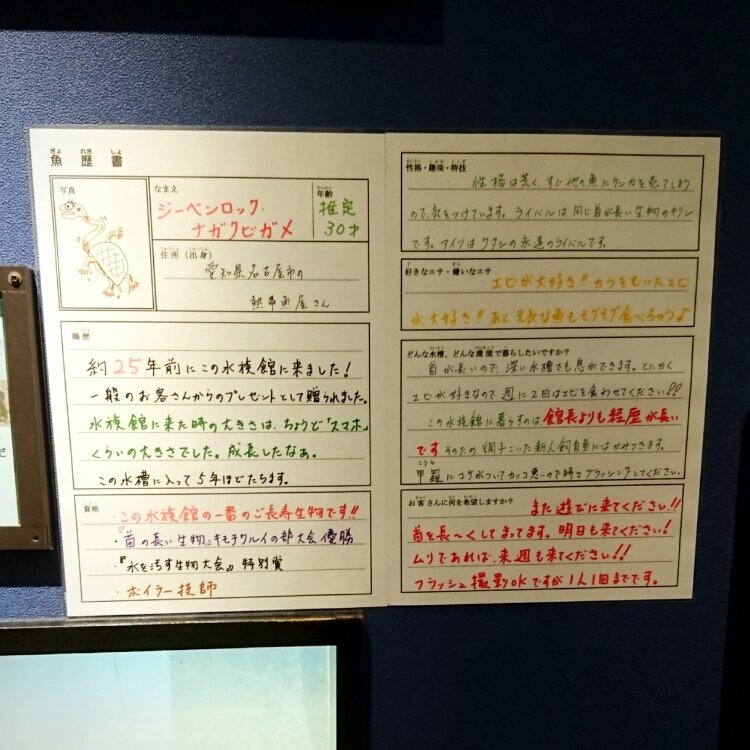 ぎょ れき しょ
魚歴書
写真
なまえ
ジーベンロック・
ナガクビガメ
年齢
推定
30才
住所(出身)
愛知県名古屋市の
熱帯魚屋さん
職歴
約25年前にこの水族館に来ました!
一般のお客さんからのプレゼントとして贈られました。
水族館に来た時の大きさは、ちょうど「スマホ」
くらいの大きさでした。成長したなぁ。
この水槽に入って5年ほどたちます。
資格
・この水族館の一番のご長寿生物です!!
・『首の長い生物』キモチワルイの部大会優勝
・『水を汚す生物大会』特別賞
・ボイラー技師
性格・趣味・特技
性格は荒く、すぐ他の魚にケンカを売ってしまう
ので、気をつけています。ライバルは、同じ首が長い生物のキリン
です。アイツはワタシの永遠のライバルです。
好きなエサ・嫌いなエサ
エビが大好き!!カラをむいたエビ
が大好き!!あと、元気な魚もモグモグ食べちゃう♪
どんな水槽、どんな環境で暮らしたいですか?
首が長いので、深い水槽でも息ができます。とにかく
エビが好きなので、週に2日はエビを食わせてください!!
この水族館に暮らすのは館長よりも経歴が長い
です そのため、調子こいた新人飼育員にはかみつきます。
こうら
甲羅にコケがついてカッコ悪いので時々ブラッシングしてください。
お客さんに何を希望しますか?
また遊びに来てください!!
首を長〜くしてまってます。明日も来てください!
ムリであれば、来週も来てください!!
フラッシュ撮影OKですが1人1回までです。